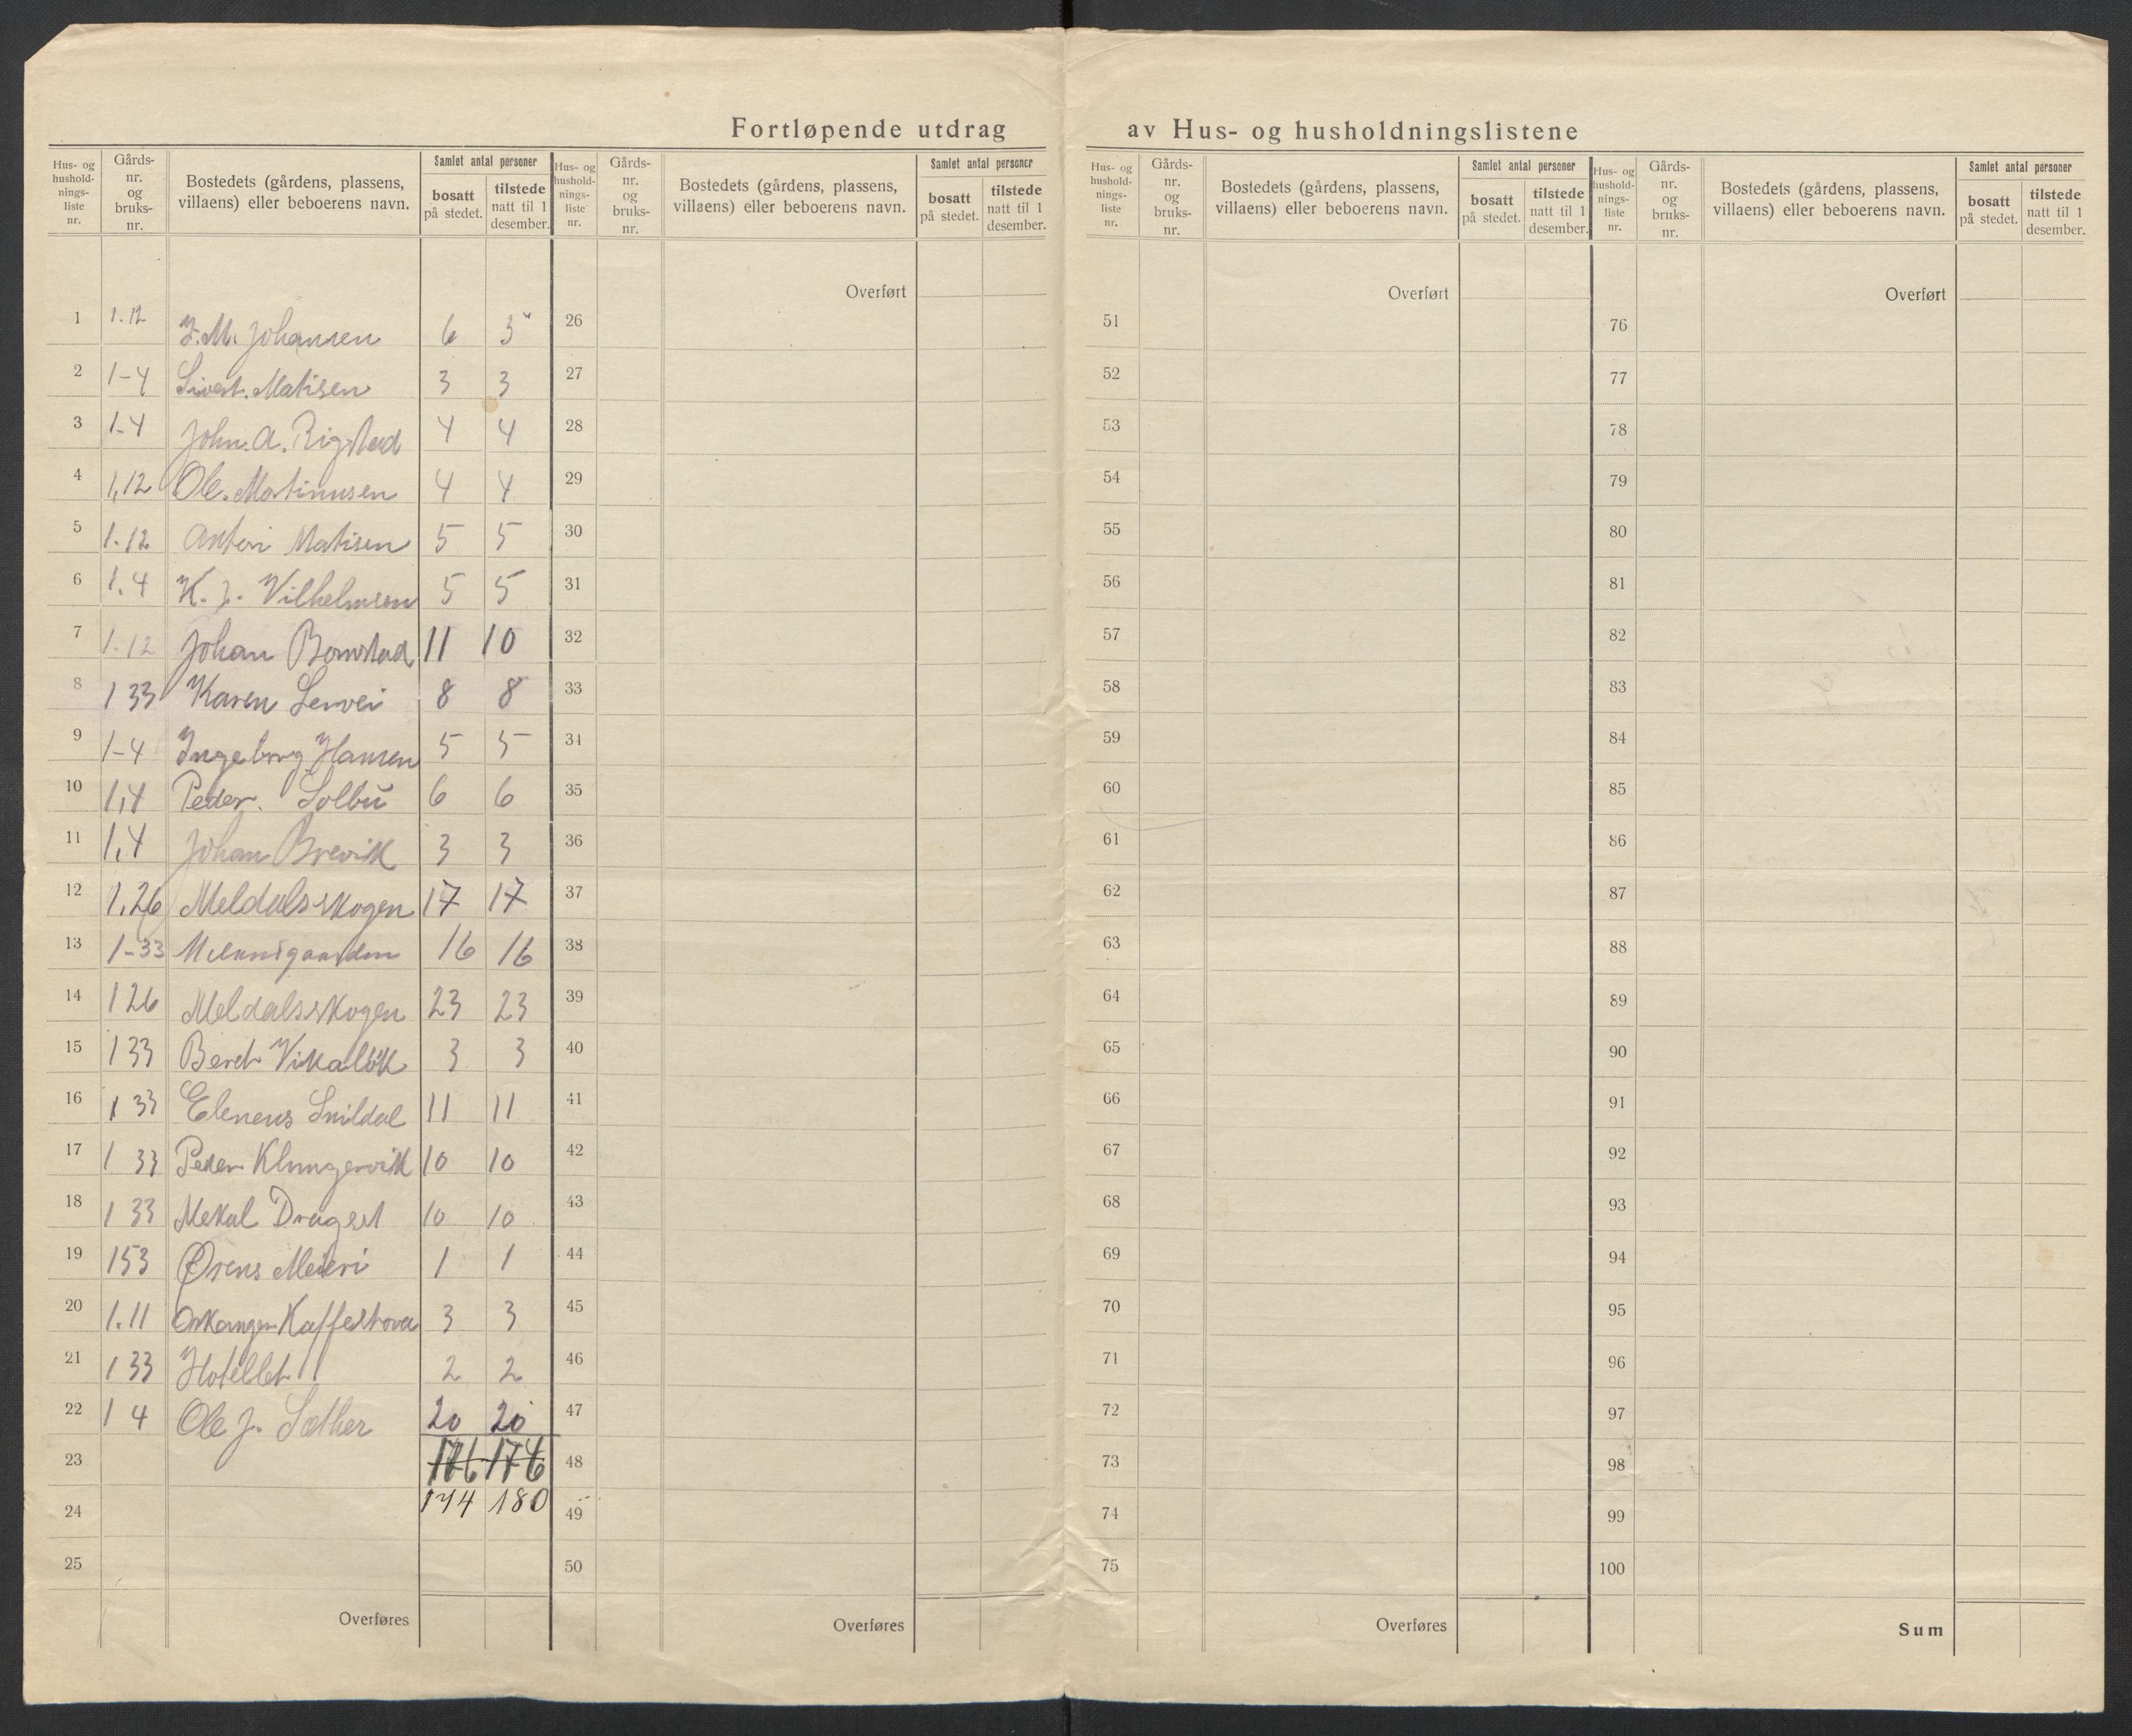 Fortløpende utdrag av Hus- og husholdningslistene
Hus- og husholdningsliste nr. Gårdsnr. og bruksnr. Bostedets (gårdens, plassens, villaens) eller beboerens navn. Samlet antal personer bosatt på stedet. tilstede natt til 1 desember.
Hus- og husholdningsliste nr. Gårdsnr. og bruksnr. Bostedets (gårdens, plassens, villaens) eller beboerens navn. Samlet antal personer bosatt på stedet. tilstede natt til 1 desember.
Hus- og husholdningsliste nr. Gårdsnr. og bruksnr. Bostedets (gårdens, plassens, villaens) eller beboerens navn. Samlet antal personer bosatt på stedet. tilstede natt til 1 desember.
Hus- og husholdningsliste nr. Gårdsnr. og bruksnr. Bostedets (gårdens, plassens, villaens) eller beboerens navn. Samlet antal personer bosatt på stedet. tilstede natt til 1 desember.
1 1.12 J.M. Johansen 6 3
2 1-4 Sivert. Matisen 3 3
3 1-4 John. A. Rigstad 4 4
4 1,12 Ole. Martinusen 4 4
5 1.12 Matisen 5 5
6 1.4 K. J. Vilhelmsen 5 5
7 1-12 Johan Bomstad 11 10
8 1 33 Karen Lervei 8 8
9 1-4 Ingeborg Hansen 5 5
10 1,4 Peder. Solbu 6 6
11 1,4 Johan Brevik 3 3
12 1.26 Meldalsskogen 17 17
13 1-33 16 16
14 1 26 Meldalsskogen 23 23
15 1 33 Beret 3 3
16 1 33 Eleneus Snildal 11 11
17 1 33 Peder Klungervik 10 10
18 1 33 Mekal Dragset 10 10
19 153 Ørens Meieri 1 1
20 1.11 Orkanger Kaffestova 3 3
21 1 33 Hotellet 2 2
22 1 4 Ole J. Sæther 20 20
23 176 176
24 174 180
25
Overføres
Overført
26
27
28
29
30
31
32
33
34
35
36
37
38
39
40
41
42
43
44
45
46
47
48
49
50
Overføres
Overført
51
52
53
54
55
56
57
58
59
60
61
62
63
64
65
66
67
68
69
70
71
72
73
74
75
Overføres
Overført
76
77
78
79
80
81
82
83
84
85
86
87
88
89
90
91
92
93
94
95
96
97
98
99
100
Sum